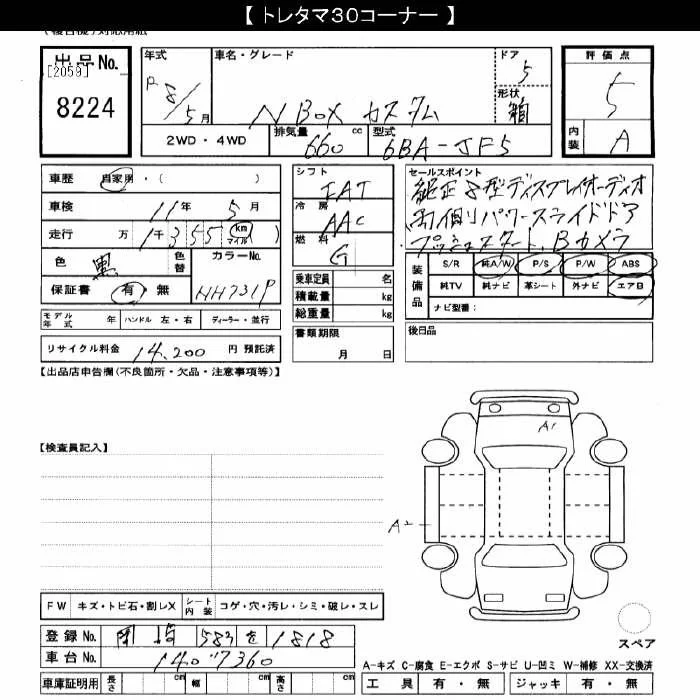 【 トレタマ30コーナー 】
出品No.
[2059]
8224
年式
R 8/5 月
車名・グレード
N BOX カスタム
ドア
5
形状
箱
評価点
5
内装
A
2WD・4WD
排気量
660 cc
型式
6BA-JF5
車歴 自家用・( )
車検 11年 5月
走行 万 1千 355 (km マイル)
色 黒
色替
カラーNo.
NH731P
保証書 有・無
モデル年式 年
ハンドル 左・右
ディーラー・並行
リサイクル料金 14,200 円 預託済
シフト
IAT
冷房
AAC
燃料
G
乗車定員 名
積載量 kg
総重量 kg
書類期限
月 日
セールスポイント
純正8型ディスプレイオーディオ
両側パワースライドドア
プッシュスタート、Bカメラ
装備品
S/R 純A/W P/S P/W ABS
純TV 純ナビ 革シート 外ナビ エアB
ナビ型番:
後日品
【出品店申告欄(不良箇所・欠品・注意事項等)】
【検査員記入】
A1
A2
FW キズ・トビ石・割レX
シート内装 コゲ・穴・汚レ・シミ・破レ・スレ
登録No. 583 を 1818
車台No. 1407360
車庫証明用 長さ cm 幅 cm 高さ cm
スペア
A-キズ C-腐食 E-エクボ S-サビ U-凹ミ W-補修 XX-交換済
工具 有・無 ジャッキ 有・無